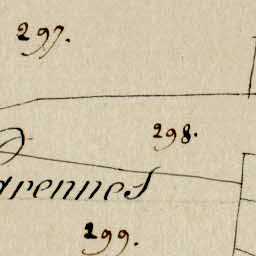 297.
298.
arennes
299.